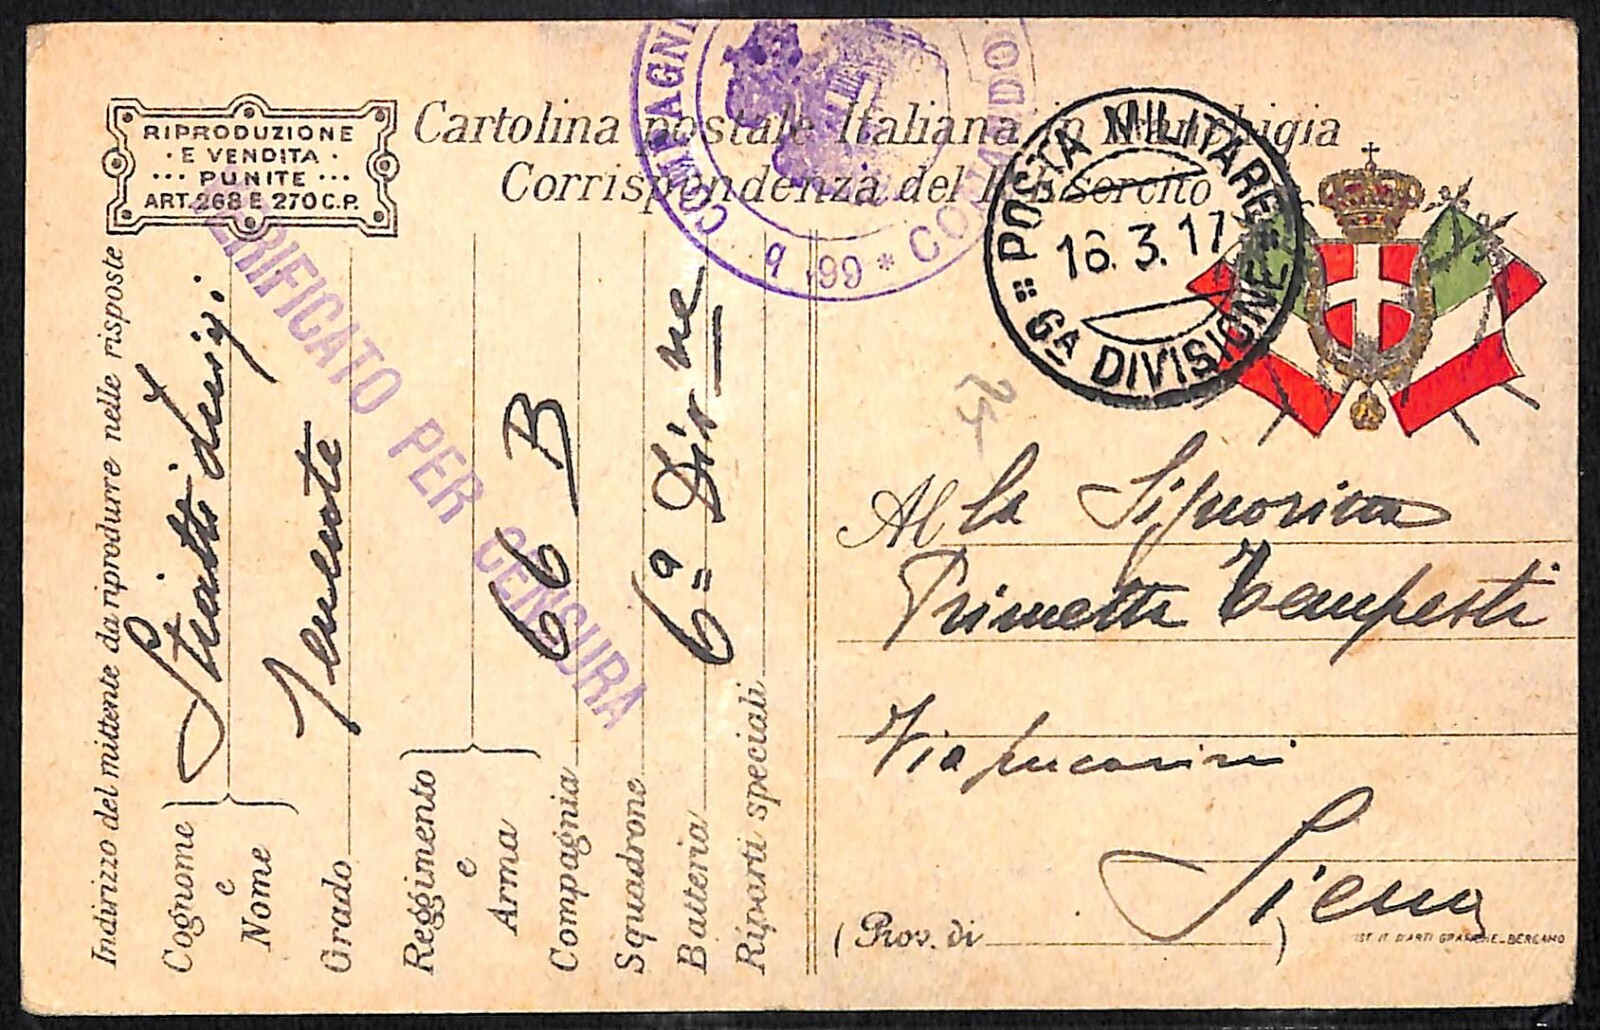 RIPRODUZIONE
· E VENDITA ·
··· PUNITE ···
ART. 268 E 270 C.P.
Cartolina postale Italiana in franchigia
Corrispondenza del R. Esercito
COMPAGNI
99, b * COMANDO
POSTA MILITARE
16.3.17
6A DIVISIONE
VERIFICATO PER CENSURA
Indirizzo del mittente da riprodurre nelle risposte
Cognome e Nome
Striatti Luigi.
Grado
Reggimento e Arma
Compagnia
66 B
Squadrone
Batteria
6ª Div ne
Riparti speciali
25
Alla Signorina
Primetta Tempesti
Via
Siena
(Prov. di )
IST. IT. D'ARTI GRAFICHE - BERGAMO